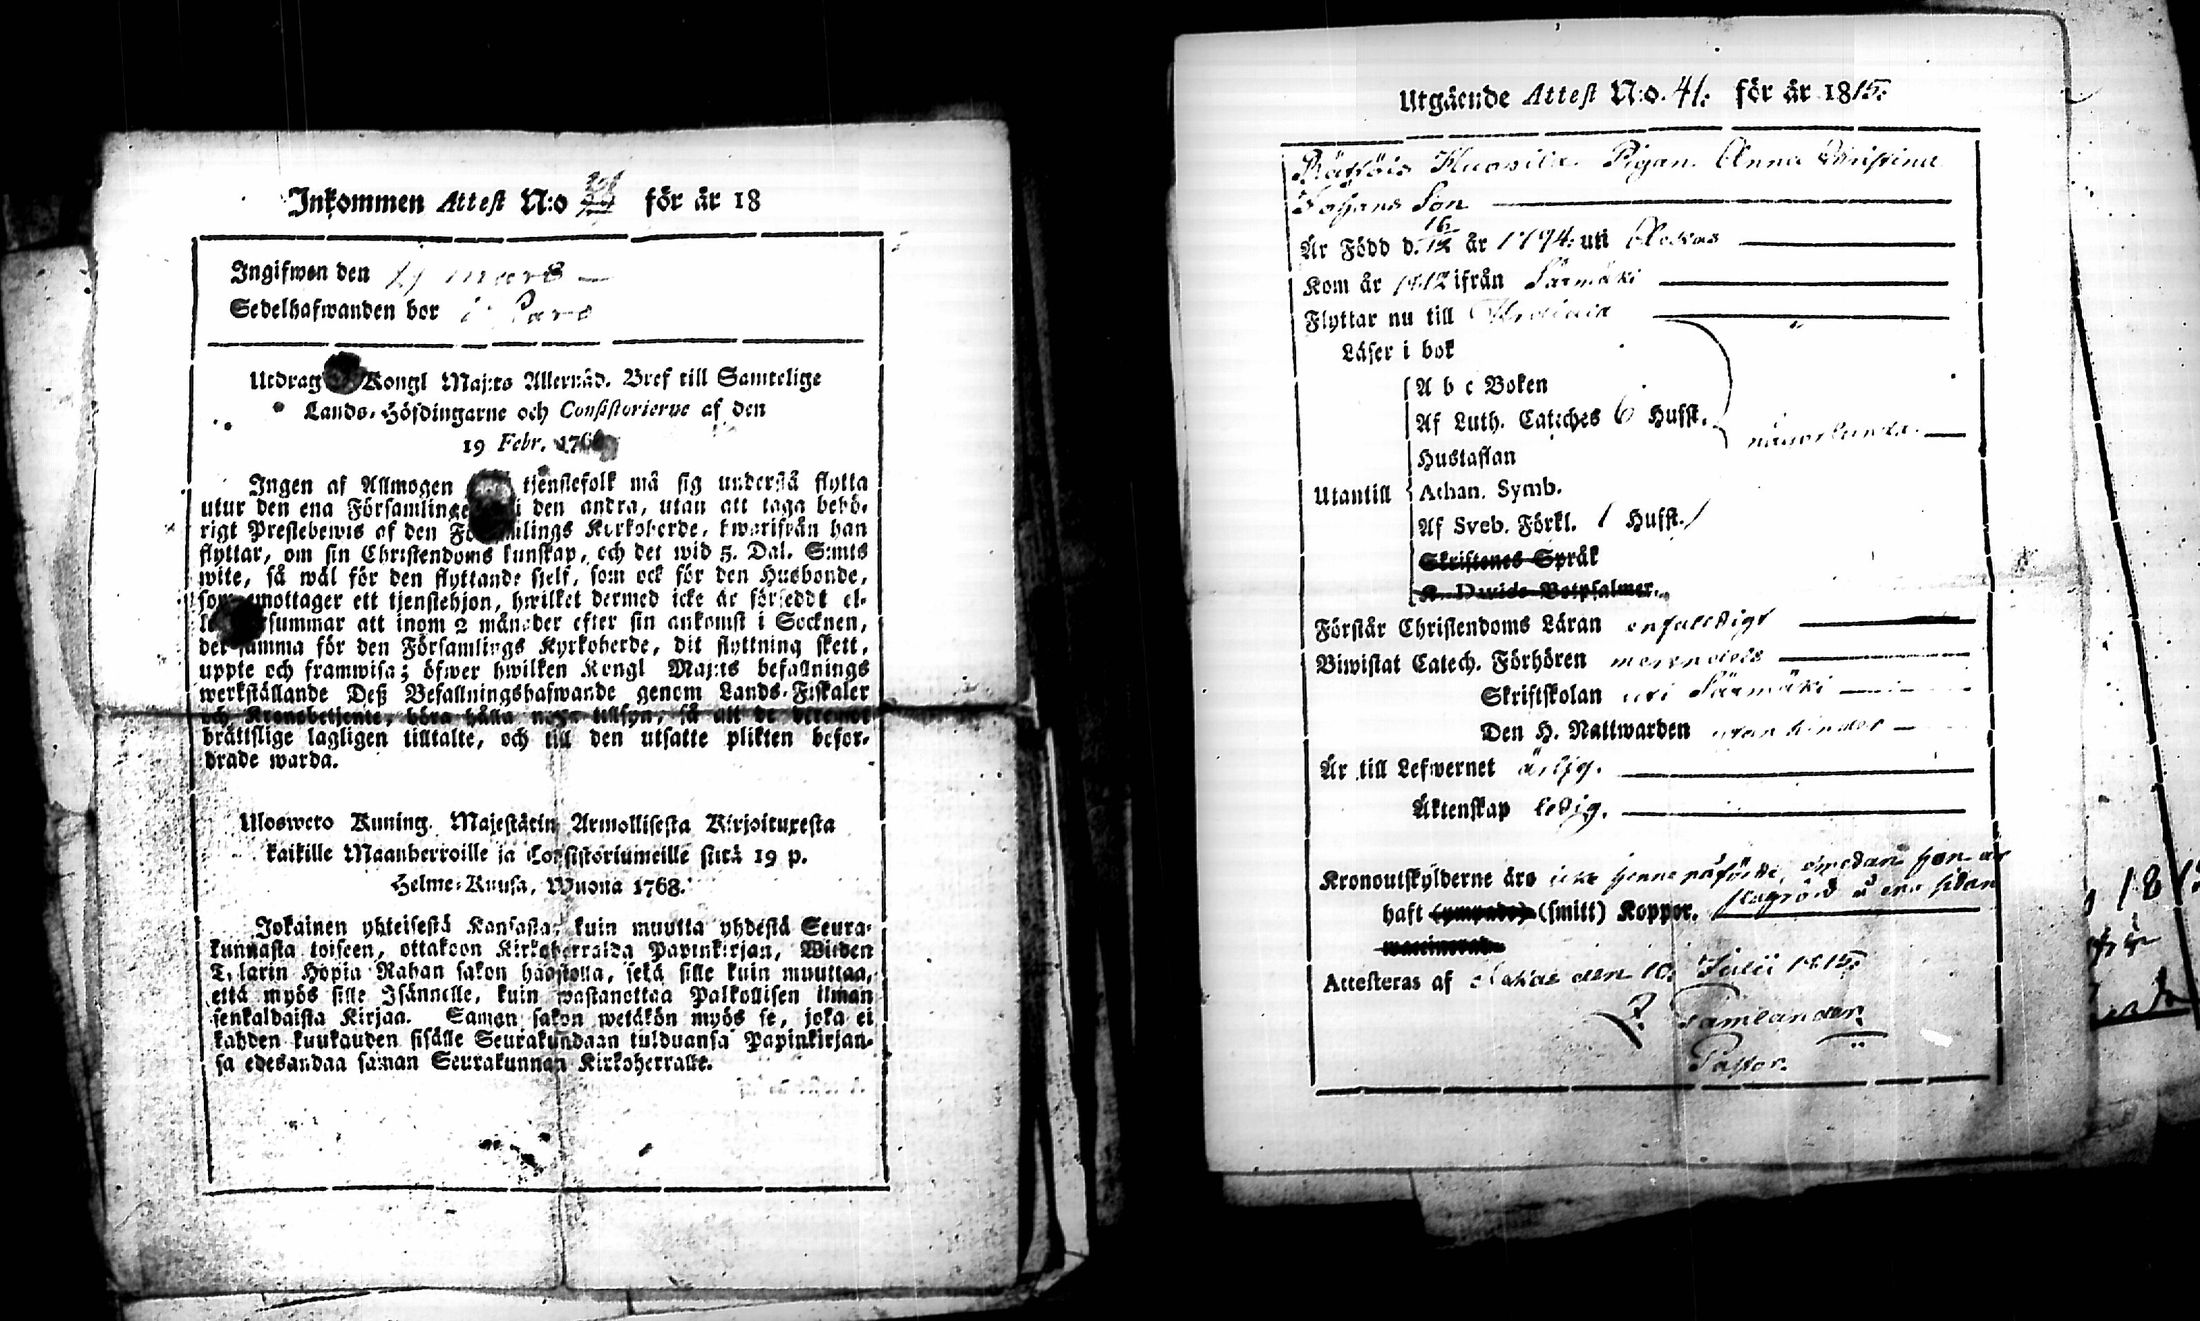 Inkommen Attest N:o för år 18
Ingifwen den mars
Sedelhafwanden bor i
Utdrag Kongl Maj:ts Allernåd. Bref till Samtelige
Lands-Höfdingarne och Consistorierne af den
19 Febr. 176
Ingen af Allmogen tjenstefolk må sig understå flytta
utur den ena Församlinge i den andra, utan att taga behö-
rigt Prestebewis af den Församlings Kyrkoherde, hwarifrån han
flyttar, om sin Christendoms kunskap, och det wid 5. Dal. S:mts
wite, så wäl för den flyttande sjelf, som ock för den Husbonde,
som emottager ett tjenstehjon, hwilket dermed icke är försedt el-
summar att inom 2 månader efter sin ankomst i Socknen,
det samma för den Församlings Kyrkoherde, dit flyttning skett,
uppte och framwisa; öfwer hwilken Kongl Maj:ts befallnings
werkställande Deß Befallningshafwande genom Lands-Fiskaler
och Kronobetjente, böra hålla noga tillsyn, så att de deremot
bråttslige lagligen tilltalte, och till den utsatte plikten befor-
drade warda.
Ulosweto Kuning. Majestätin Armollisesta Kirjoituxesta
kaikille Maanherroille ja Consistoriumeille siitä 19 p.
Helme-Kuusa, Wuona 1768.
Jokainen yhteisestä Kansasta, kuin muutta yhdestä Seura-
kunnasta toiseen, ottakoon Kirkoherralda Papinkirjan, Wiiden
T.larin Hopia Rahan sakon haastolla, sekä sille kuin muuttaa,
että myös sille Isännelle, kuin wastanottaa Palkollisen ilman
senkaldaista Kirjaa. Saman sakon wetäkön myös se, joka ei
kahden kuukauden sisälle Seurakundaan tulduansa Papinkirjan-
sa edesandaa saman Seurakunnan Kirkoherralle.
Utgående Attest N:o. 41. för år 1815.
Pigan Anna Christina
Johans Son
Är Född d. 16/12 år 1794. uti
Kom år 1812 ifrån Särmäki
Flyttar nu till
Läser i bok
A b c Boken
Af Luth. Catéches 6 Hufst.
Hustaflan
Utantill Athan. Symb.
Af Sveb. Förkl. 1 Hufst.
Skriftenes Språk
K. Davids Botpsalmer.
Förstår Christendoms Läran enfalldigt
Biwistat Catech. Förhören merendels
Skriftskolan uti Särmäki
Den H. Nattwarden utan hinder
Är till Lefwernet ärlig.
Äktenskap ledig.
Kronoutskylderne äro icke henne påförde, emedan hon är
haft (ympade) (smitt) Koppor. å ena sidan
waccinerad
Attesteras af den 10. Julii 1815.
Pastor.